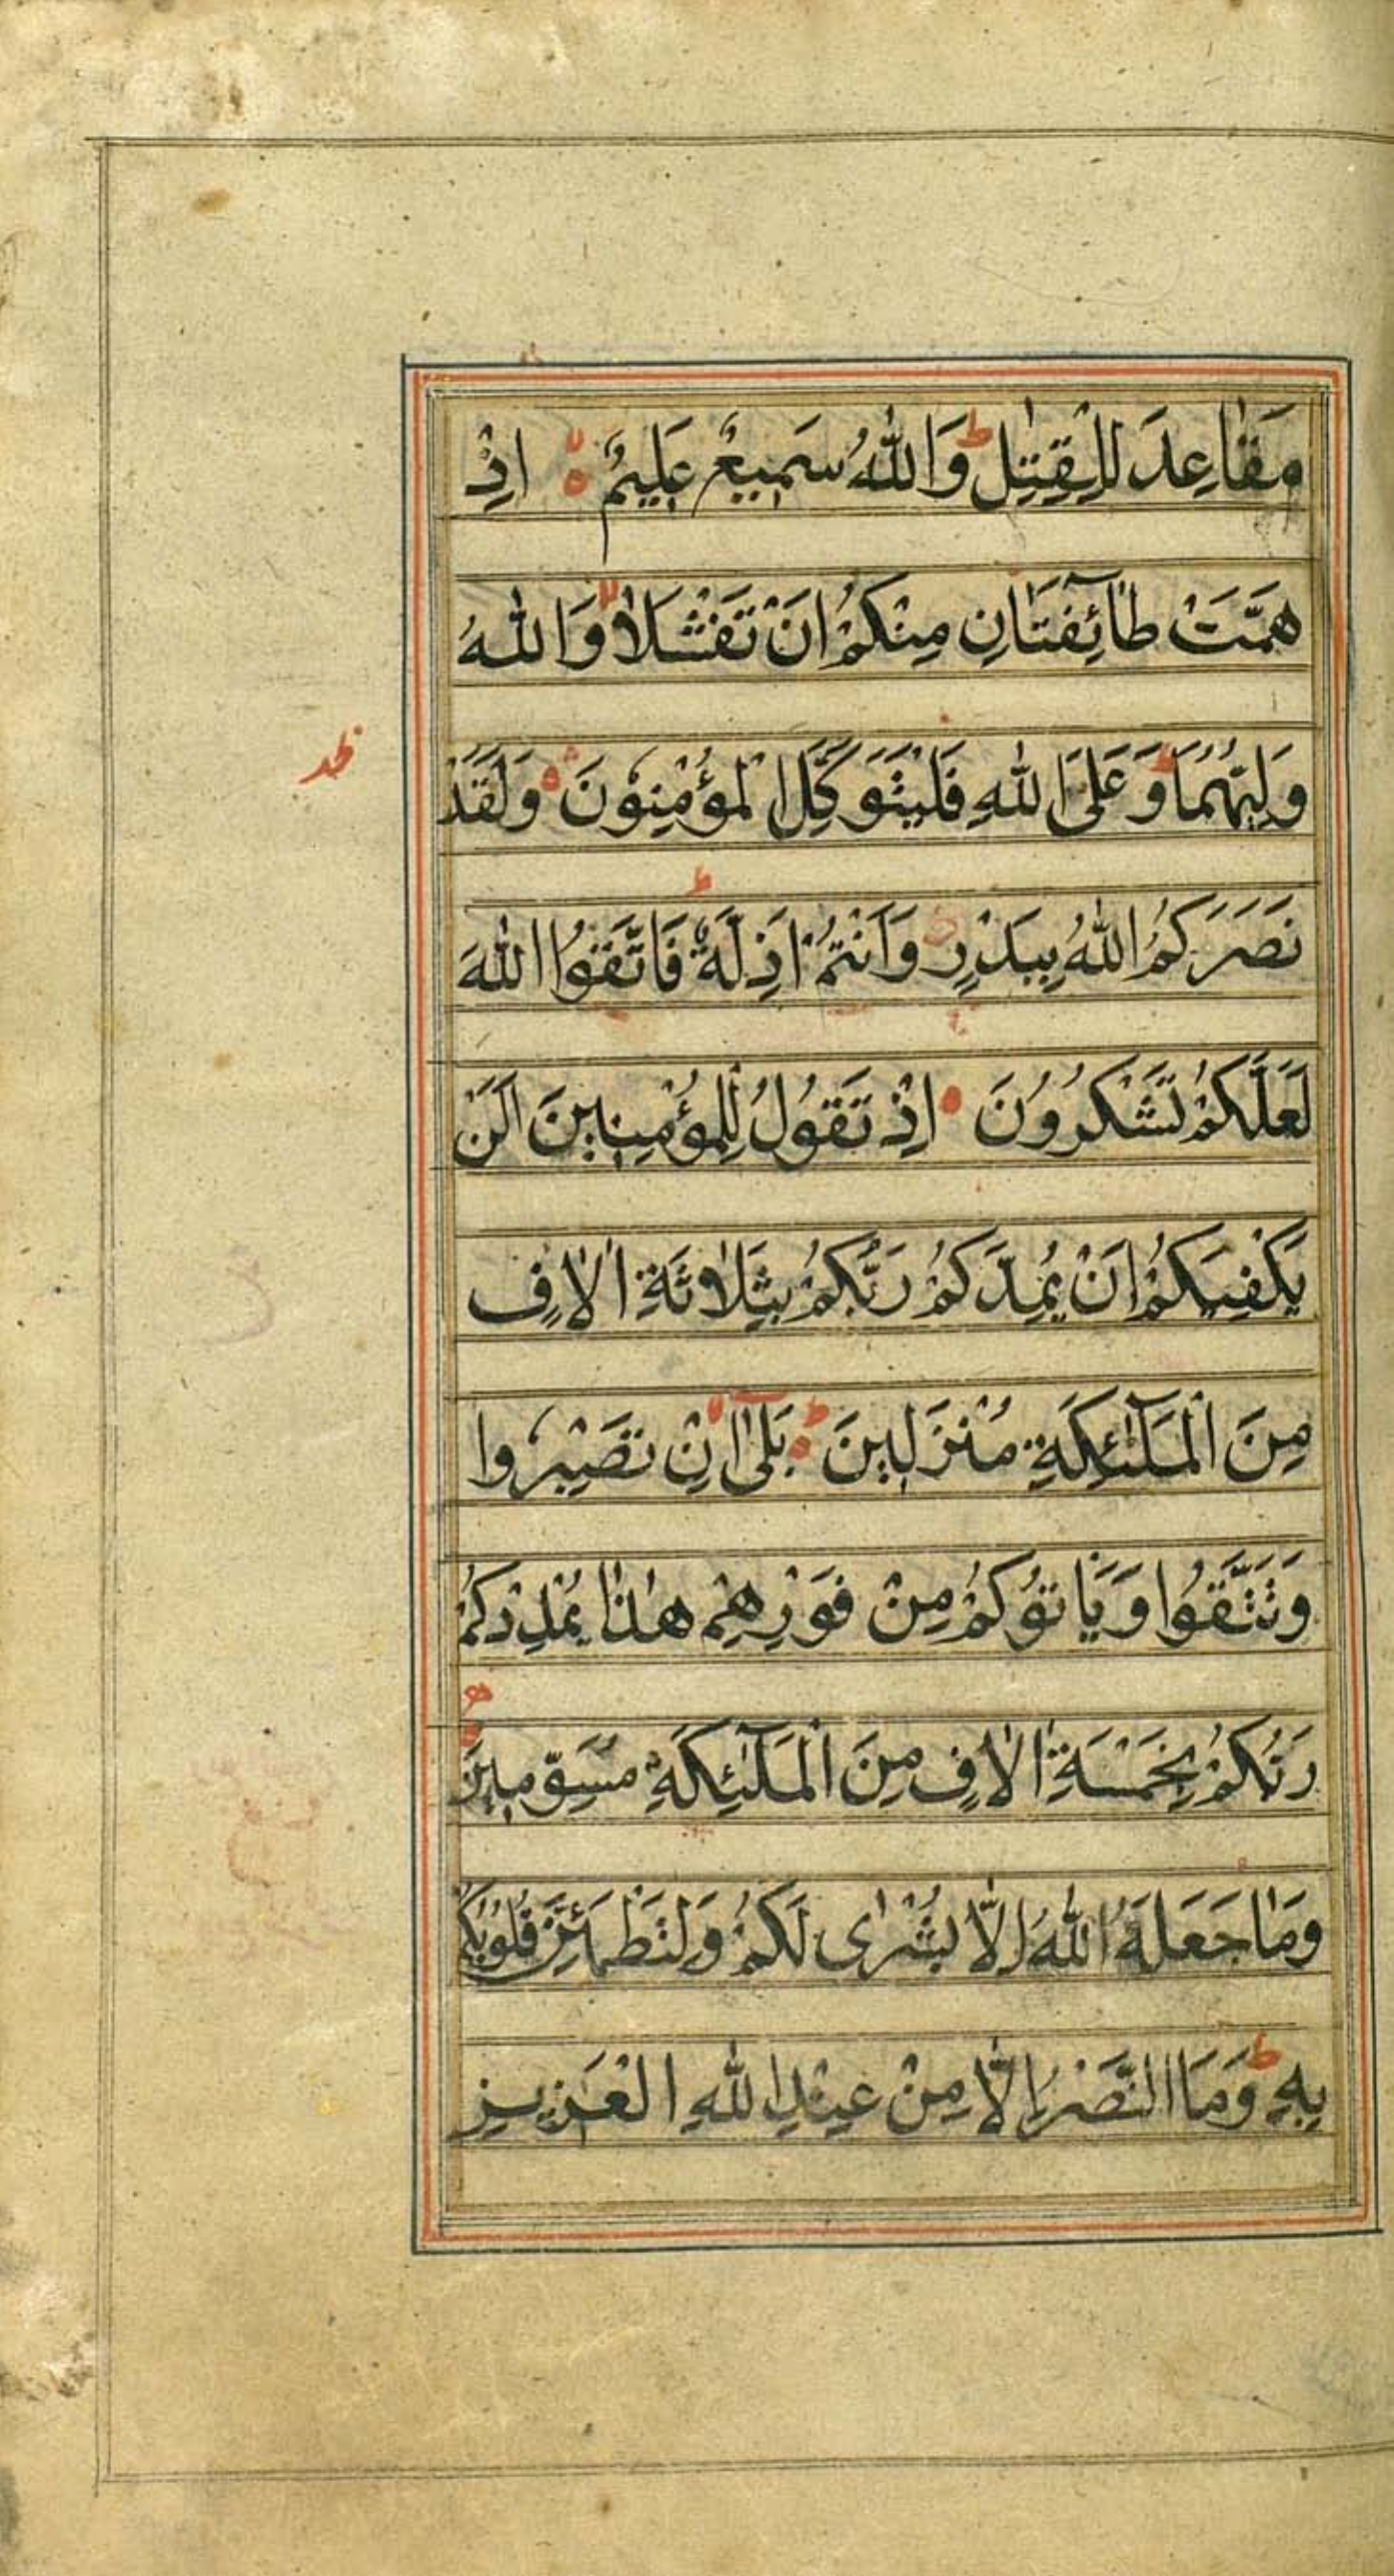 مَقٰاعِدَ لِلْقِتٰلِ ط وَاللّٰهُ سَمِيعٌ عَلِيمٌ لا ه اِذْ
هَمَّتْ طٰآئِفَتَانِ مِنْكُمْ اَنْ تَفْشَلاٰ لا وَاللّٰهُ
وَلِيُّهُمَا ط وَعَلَى اللّٰهِ فَلْيَتَوَكَّلِ الْمُؤْمِنُوْنَ ه وَلَقَدْ
ظد
نَصَرَكُمُ اللّٰهُ بِبَدْرٍ وَاَنْتُمْ اَذِلَّةٌ ج فَاتَّقُوا اللّٰهَ
لَعَلَّكُمْ تَشْكُرُوْنَ اِذْ تَقُولُ لِلْمُؤْمِنِينَ اَلَنْ
يَكْفِيَكُمْ اَنْ يُمِدَّكُمْ رَبُّكُمْ بِثَلاٰثَةِ اٰلاٰفٍ
مِنَ الْمَلٰٓئِكَةِ مُنْزَلِينَ ط ه بَلٰٓى لا اِنْ تَصْبِرُوا
وَتَتَّقُوا وَيَاْتُوْكُمْ مِنْ فَوْرِهِمْ هٰذٰا يُمْدِدْكُمْ
رَبُّكُمْ بِخَمْسَةِ اٰلاٰفٍ مِنَ الْمَلٰٓئِكَةِ مُسَوِّمِينَ ه
وَمٰا جَعَلَهُ اللّٰهُ اِلاّٰ بُشْرٰى لَكُمْ وَلِتَطْمَئِنَّ قُلُوْبُكُمْ
بِهٖ ط وَمَا النَّصْرُ اِلاّٰ مِنْ عِنْدِ اللّٰهِ الْعَزِيزِ